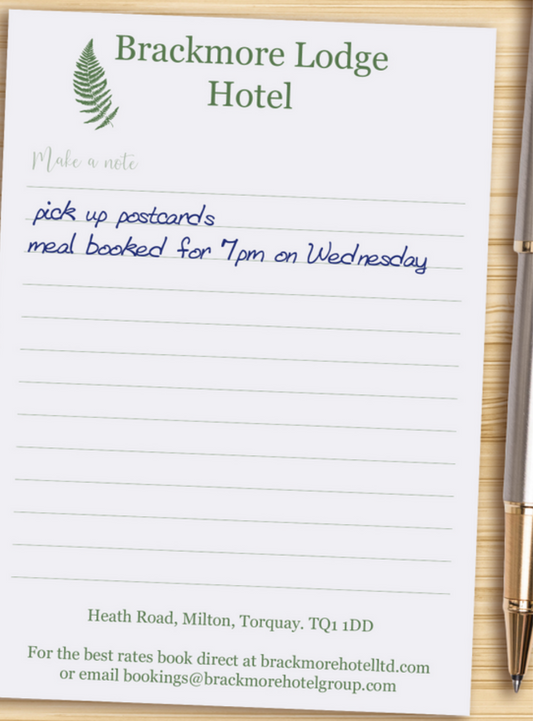 Brackmore Lodge
Hotel
Make a note
pick up postcards
meal booked for 7pm on Wednesday
Heath Road, Milton, Torquay. TQ1 1DD
For the best rates book direct at brackmorehotelltd.com
or email bookings@brackmorehotelgroup.com